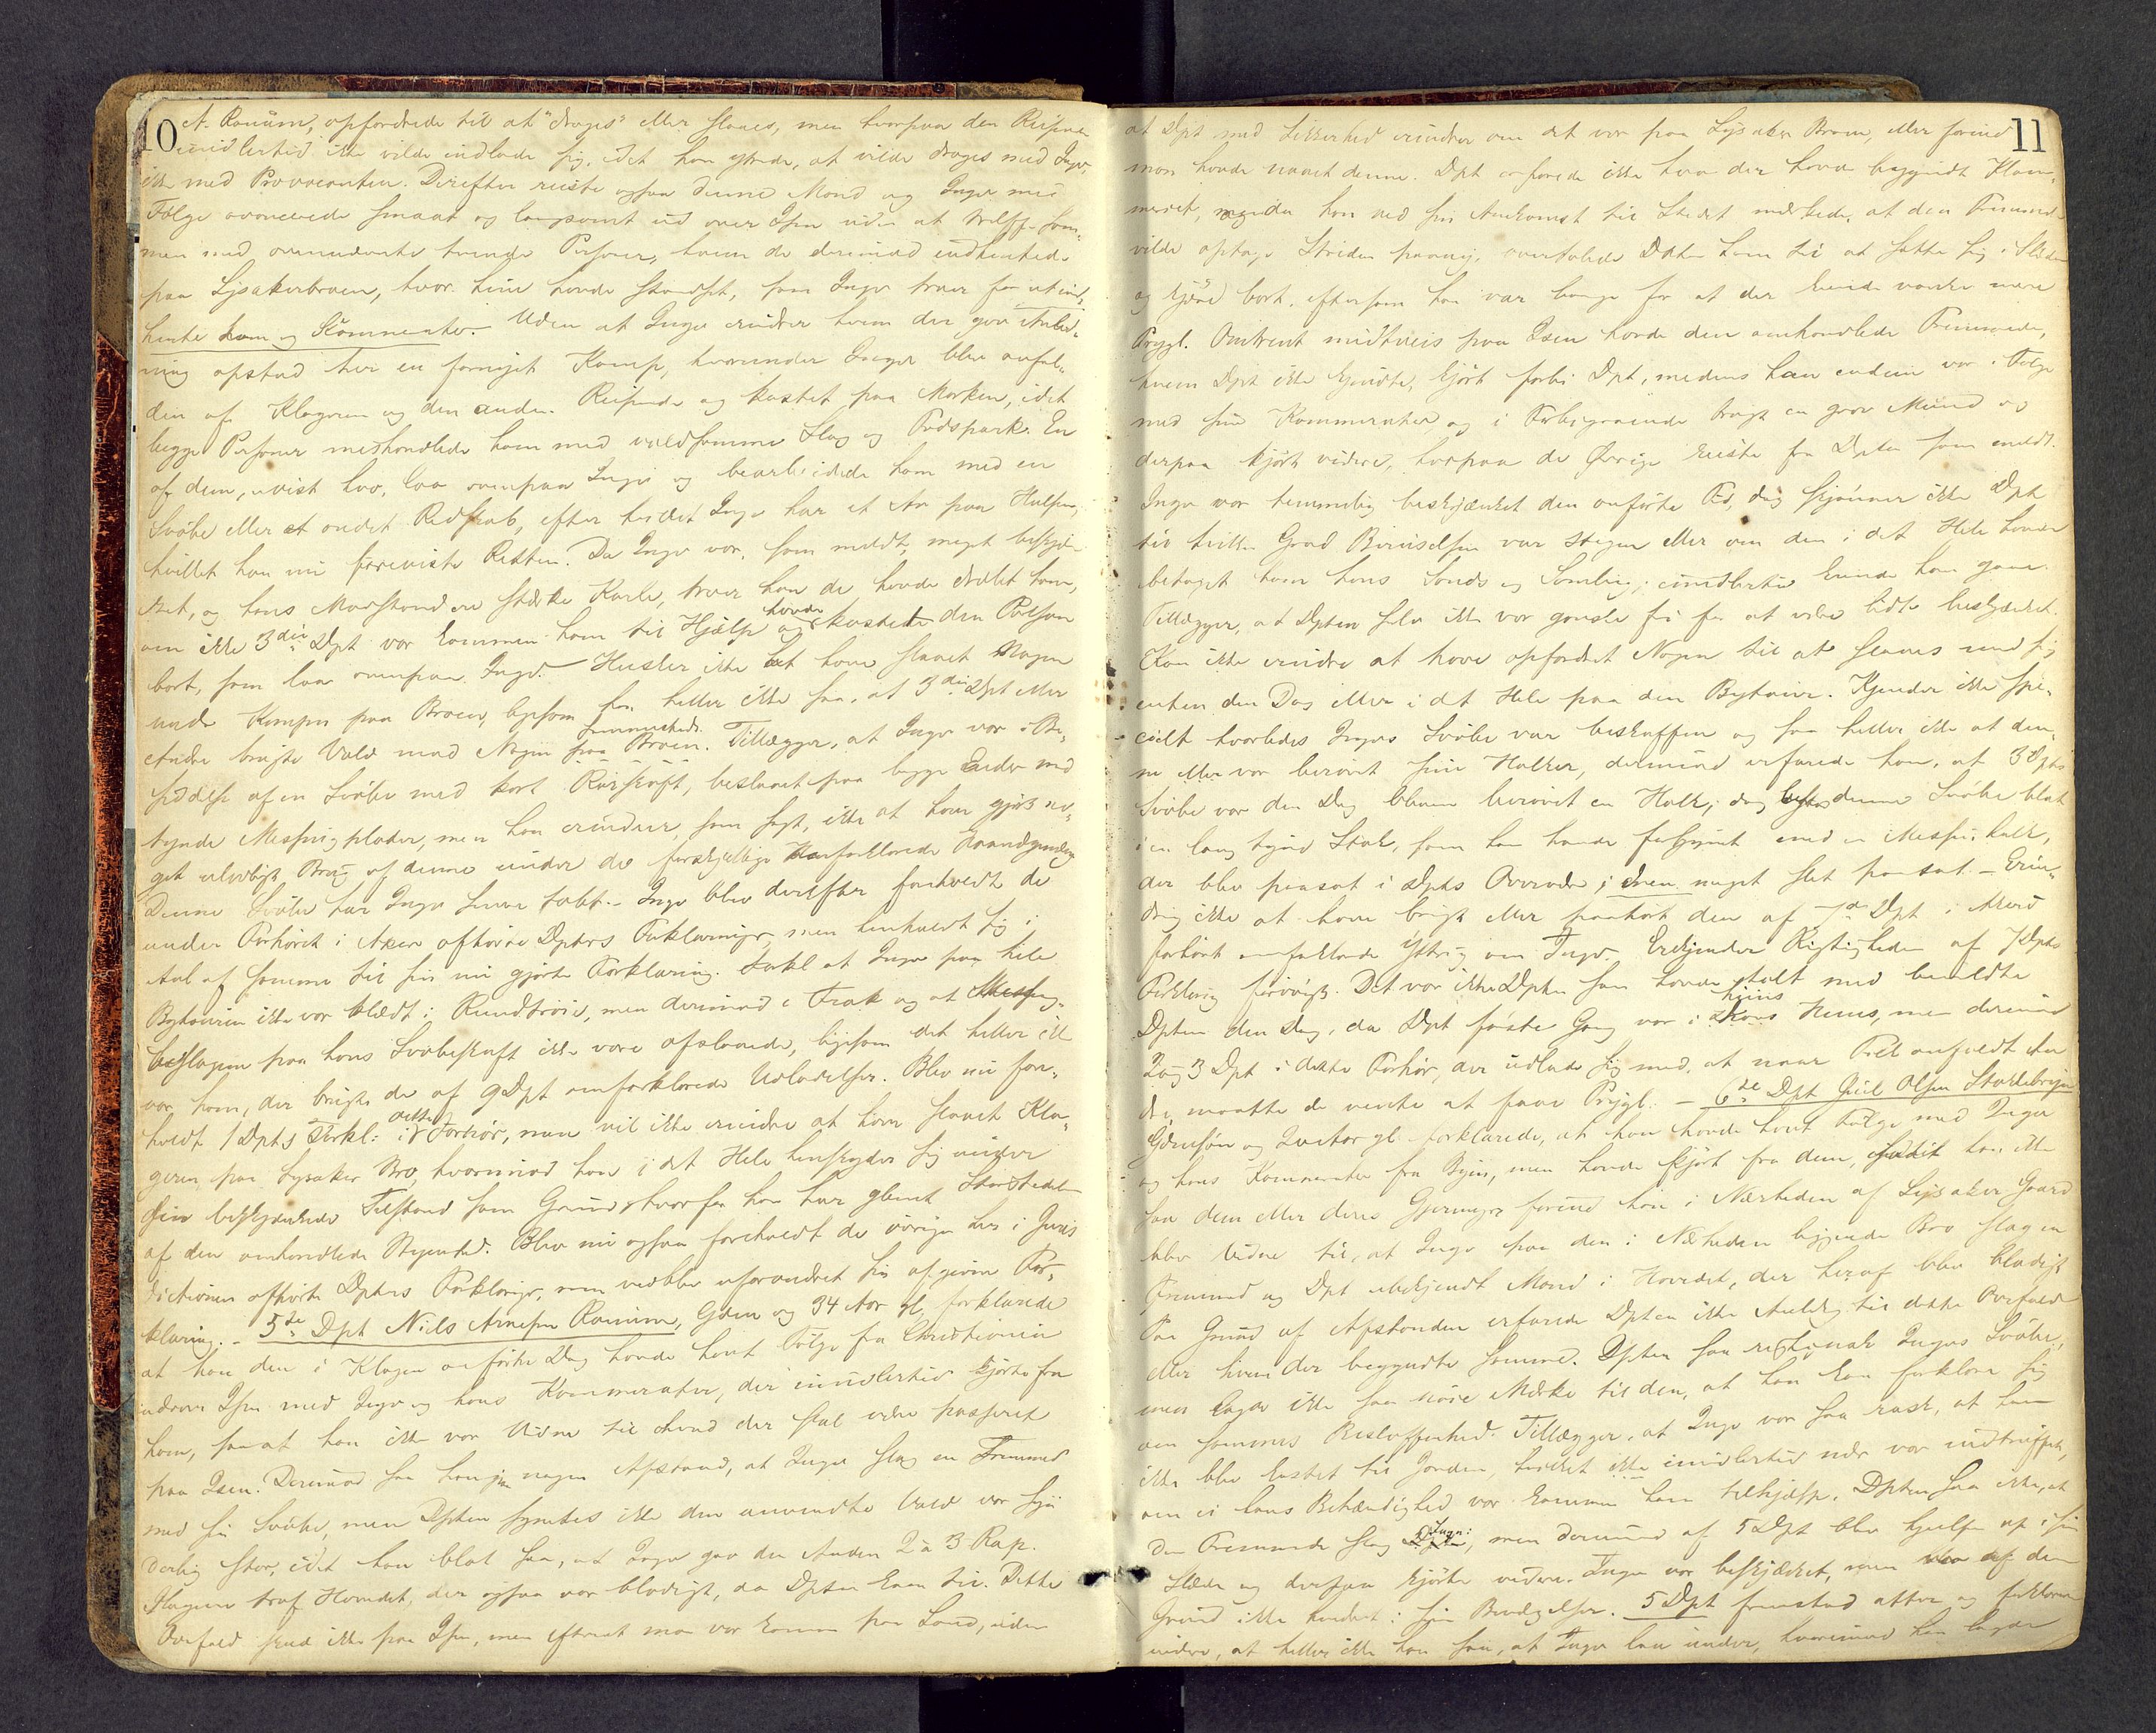 10
A. Ramum, opfordrede til at "drages" eller slaaes, men hvorpaa den Reisende
imidlertid ikke vilde indlade sig, idet han ytrede, at vilde drages med Inger,
ikke med Provocanten. Derefter reiste ogsaa denne Mand og Inger med
Følge avancerede smaat og langsomt ud over Isen uden at træffe sam-
men med ovennævnte tvende Personer, hvem de derimod indhentede
paa Lysakerbroen, hvor hine havde standset, som Inger troer for at ind-
hente ham og Kammerater. Uden at Inger erindrer hvem der gav Anled-
ning opstod her en fornyet Kamp, hvorunder Inger blev anfal-
den af Klageren og den anden Reisende og kastet paa Marken, idet
begge Personer mishandlede ham med voldsomme Slag og Fodspark. En
af dem, uvist hvo, laa ovenpaa Inger og bearbeidede ham med en
Svøbe eller et andet Redskab, efter hvilket Inger har et Ar paa Halsen,
hvilket han nu foreviste Retten. Da Inger var, som meldt, meget beskjæn-
ket, og hans Modstandere stærke Karle, troer han de havde dræbt ham,
om ikke 3die Dpt var kommen ham til Hjælp og havde kastet den Person
bort, som laa ovenpaa Inger. Husker ikke at have slaaet Nogen
under Kampen paa Broen, ligesom han heller ikke saa, at 3die Dpt eller
Andre brugte Vold mod Nogen paa Broen. Tillægger, at Inger var i Be-
siddelse af en Svøbe med kort Rørskaft, beslaaet paa begge Ender med
tynde Messingplader, men han erindrer, som sagt, ikke at have gjort no-
get ulovligt Brug af denne under de forskjellige omforklarede Haandgemæng
Denne Svøbe har Inger senere tabt. Inger blev derefter foreholdt de
under Forhøret i Aker afhørte Dpters Forklaringer, men henholdt sig i
Anl. af samme til sin nu gjorte Forklaring. Forkl. at Inger paa hele
Bytouren ikke var klædt i Rundtrøie, men derimod i Frak og at
Beslagene paa hans Svøbeskaft ikke vare afslaaede, ligesom det heller ikke
var ham, der brugte de af 9 Dpt omforklarede Udladelser. Blev nu fore-
holdt 1 Dpts Forkl: i dette Forhør, men vil ikke erindre at have slaaet Kla-
geren paa Lysaker Bro, hvorimod han i det Hele henskyder sig under
sin beskjænkede Tilstand som Grund hvorfor han har glemt Størstedelen
af den omhandlede Begivenhed. Blev nu ogsaa foreholdt de øvrige her i Juris-
dictionen afhørte Dpters Forklaringer, men vedblev uforandret sin afgivne For-
klaring. - 5te Dpt Niels Arnesen Ramum, Gdm og 34 Aar gl, forklarede
at han den i Klagen anførte Dag havde havt Følge fra Christiania
udover Isen med Inger og hans Kammerater, der imidlertid kjørte fra
ham, saa at han ikke var Vidne til hvad der skal være passeret
paa Isen. Derimod saa han paa nogen Afstand, at Inger slog en Fremmed
med sin Svøbe, men Dpten syntes ikke den anvendte Vold var syn-
derlig stor, idet han blot saa, at Inger gav den Anden 2 à 3 Rap.
Slagene traf Hovedet, der ogsaa var blodigt, da Dpten kom til. Dette
Overfald skede ikke paa Isen, men efterat man var kommen paa Land, uden
11
at Dpt med Sikkerhed erindrer om det var paa Lysaker Broen, eller forinden
man havde naaet denne. Dpt erfarede ikke hvo der havde begyndt Klam-
meriet, men da han ved sin Ankomst til Stedet mærkede, at den Fremmede
vilde optage Striden paany, overtalede Dpten ham til at sætte sig i Slæden
og kjøre bort, eftersom han var bange for at der kunde vanke mere
Prygl. Omtrent midtveis paa Isen havde den omhandlede Fremmede,
hvem Dpt ikke kjendte, kjørt forbi Dpt, medens han endnu var i Følge
med sine Kammerater og i Forbigaaende bragt en grov Mund og
derpaa kjørt videre, hvorpaa de Øvrige reiste fra Dpten som meldt.
Inger var temmelig beskjænket den anførte Tid, dog skjønner ikke Dpt
til hvilken Grad Beruselsen var stegen eller om den i det Hele havde
betaget ham hans Sands og Samling; imidlertid kunde han gaae.
Tillægger, at Dpten selv ikke var ganske fri for at være lidt beskjænket.
Kan ikke erindre at have opfordret Nogen til at slaaes med sig
enten den Dag eller i det Hele paa den Bytour. Kjender ikke spe-
cielt hvorledes Ingers Svøbe var beskaffen og saa heller ikke at den-
ne eller var berøvet sine Holker, derimod erfarede han, at 3 Dpts
Svøbe var den Dag bleven berøvet en Holk; dog bestod denne Svøbe blot
i en lang tynd Stok, som han havde forsynet med en Messingholk,
der blev paasat i Dpts Overvær; men meget slet paasat. - Erin-
drer ikke at have brugt eller paahørt den af 7de Dpt i Akers
Forhør omforklarede Yttring om Inger. Erkjender Rigtigheden af 7 Dpts
Forklaring forøvrigt. Det var ikke Dpten som havde talt med bemeldte
Dpten den Dag, da Dpt første Gang var i hiins Huus, men derimod
2 og 3 Dpt i dette Forhør, der udlode sig med, at naar Folk anfaldt An-
dre, maatte de vente at faae Prygl. - 6te Dpt Juul Olsen Stokkebryn
Gdmsøn og 2 Aar gl. forklarede, at han havde havt Følge med Inger
og hans Kammerater fra Byen, men havde kjørt fra dem, saa at han ikke
saa dem eller deres Gjerninger førend han i Nærheden af Lysaker Gaard
blev Vidne til, at Inger paa den i Nærheden liggende Bro slog en
Fremmed og Dpt ubekjendt Mand i Hovedet, der heraf blev blodigt
Paa Grund af Afstanden erfarede Dpten ikke Anledning til dette Overfald
eller hvem der begyndte samme. Dpten saa rigtignok Ingers Svøbe,
men lagde ikke saa nøie Mærke til den, at han kan forklare sig
om sammes Beskaffenhed. Tillægger, at Inger var saa rask, at han
ikke blev kastet til Jorden, hvilket imidlertid nær var indtruffet,
om ei hans Behændighed var kommen ham tilhjælp. Dpten saa ikke, at
den Fremmede slog Inger, men derimod af 5 Dpt blev hjulpen op i sin
Slæde og derpaa kjørte videre. Inger var beskjænket, men var af den
Grund ikke hindret i sine Bevægelser. 5 Dpt fremstod atter og forklarede
videre, at heller ikke han saa, at Inger laa under, hvorimod han lagde